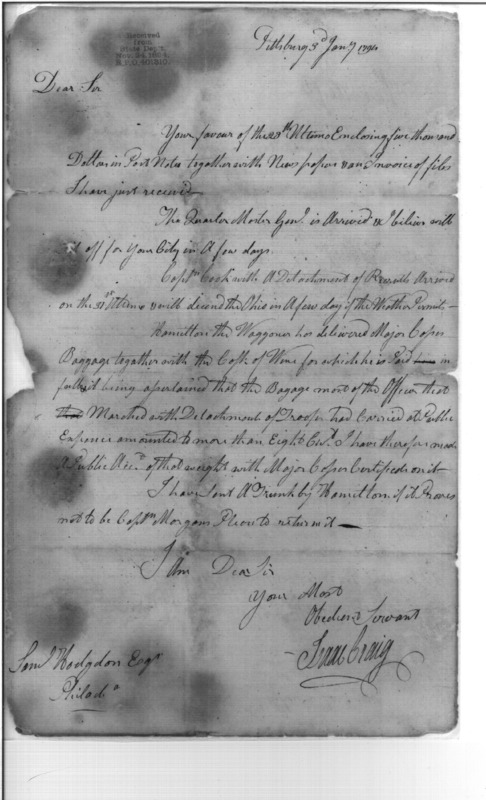 Received
from
State Dept.
Nov. 24, 1904.
Pittsburg 3d Jany 1794
Dear Sir
Your favour of the 23th Ultimo Enclosing five thousand
Dollars in Post Notes together with News papers & an Invoice of files
I have just received
The Quarter Master Genl. is Arrived & I believe will
set off for Your City in A few days
Captn Cook with a Detachment of Arrived
on the 31st Ultimo & will decend the Ohio in A few day if the Weather Permit
Hamilton the Waggoner has delivered Major
Baggage together with the Cask of Wine for which he is Paid in
full it being asertained that the Bagage most of the Officers that
Marched with Detachment of Troops had Carried at Public
Expence amounted to more than Eight Cwt. I have therefore made
A Public Acct. of that weight with Major Certificate on it
I have Sent A Trunk by Hamilton if it Proves
not to be Captn Morgans Please to return it
I Am Dear Sir
Your Most
Obedient Servant
Isaac Craig
Saml Hodgdon Esqr
Philada